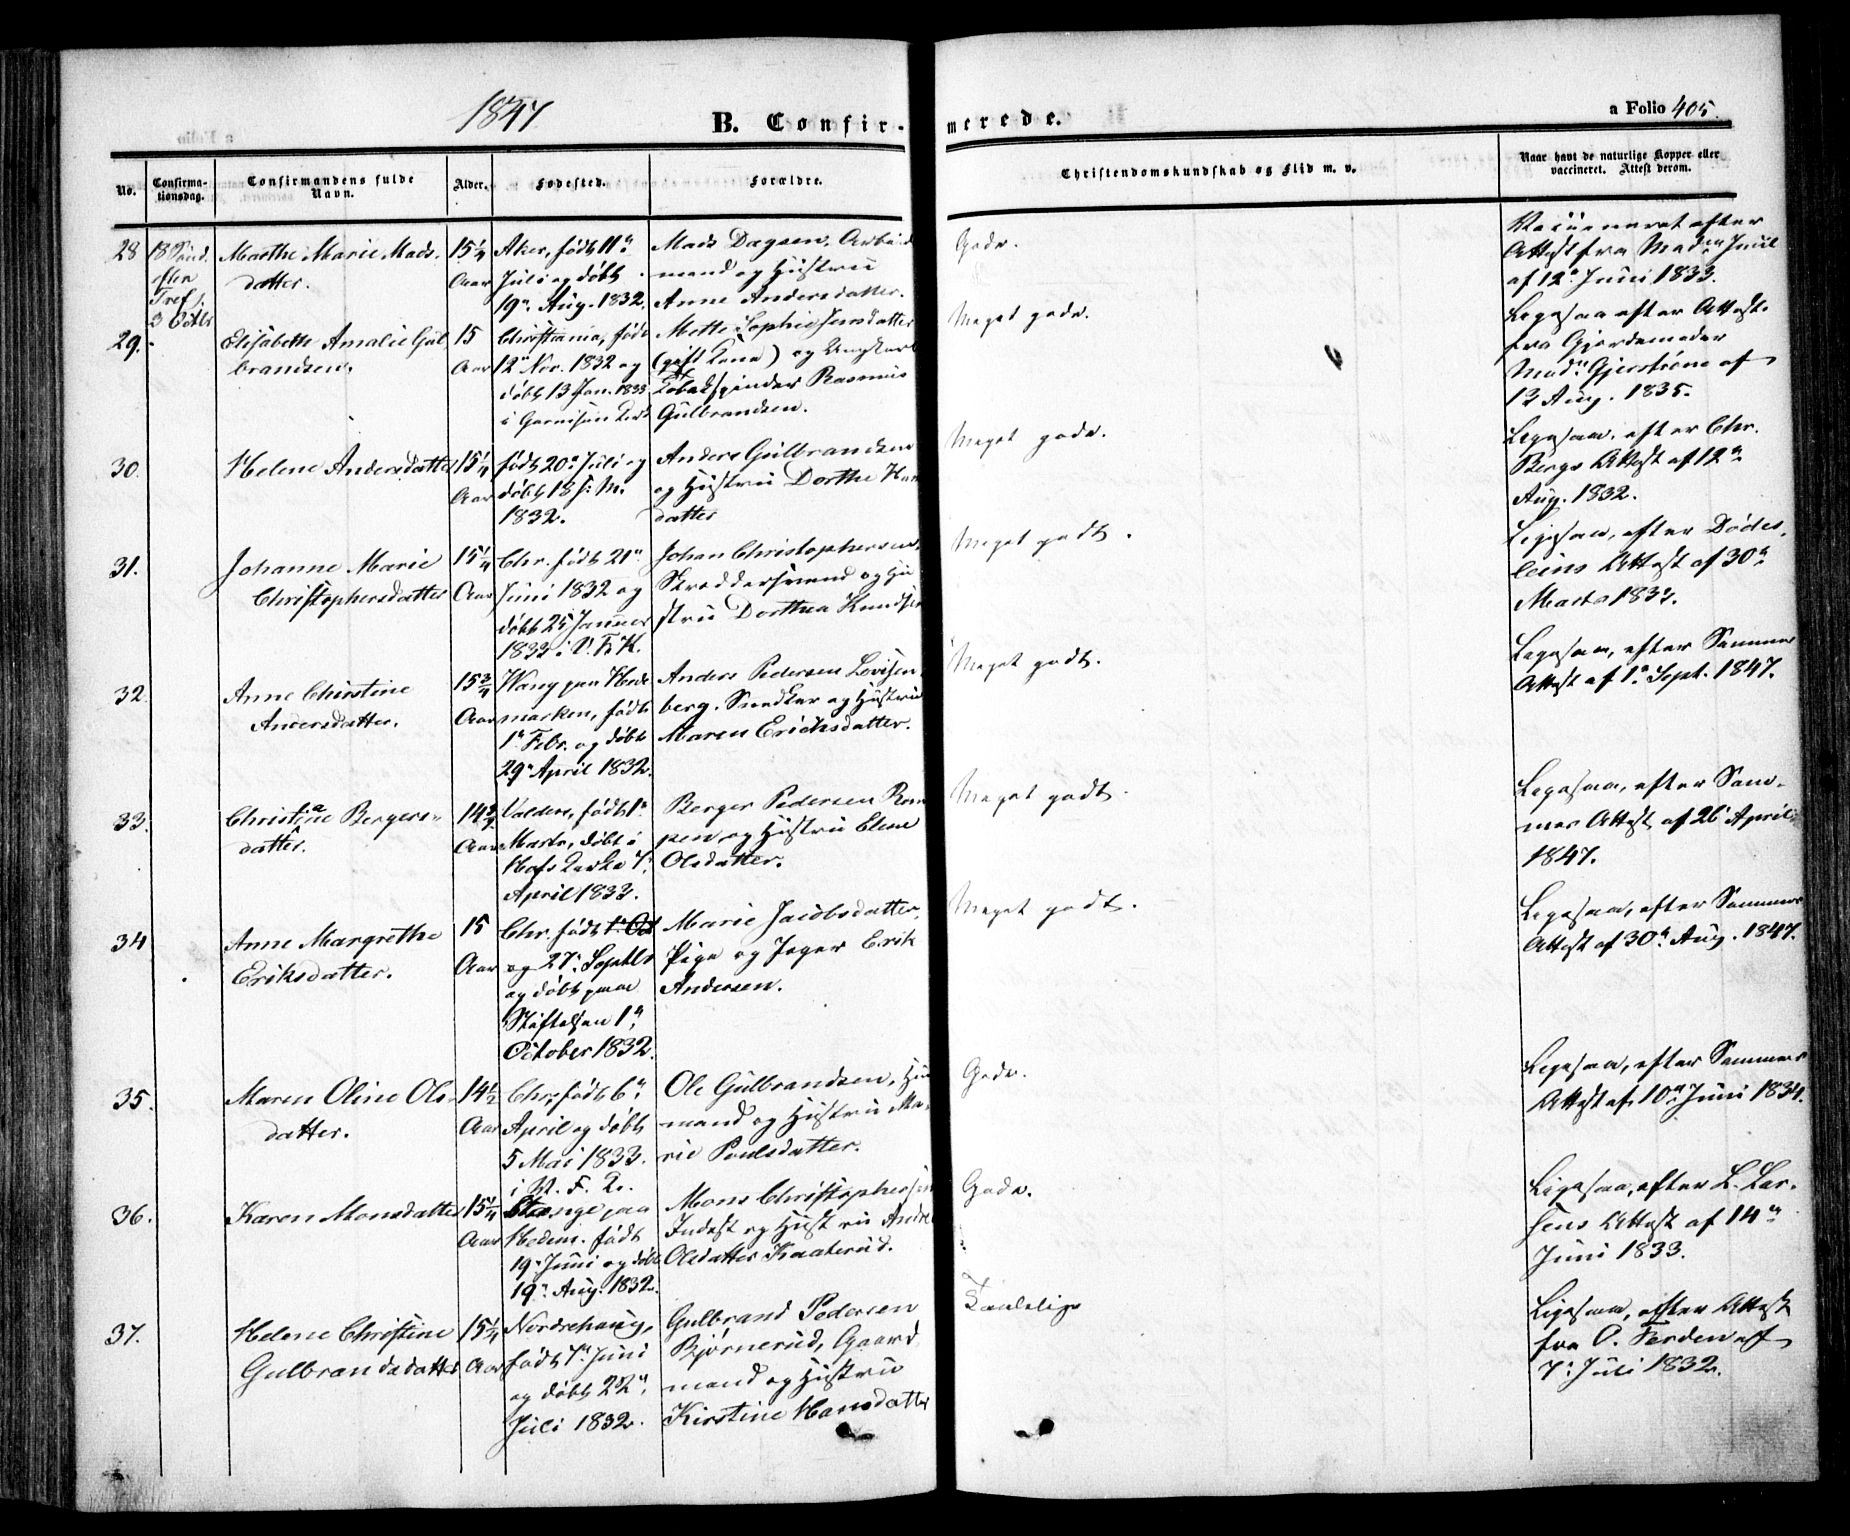 1847
B. Confir-
merede.
a Folio 405.
No.
Confirma-
tionsdag.
Confirmandens fulde
Navn.
Alder.
Fødested.
Forældre.
Christendomskundskab og Flid m. v.
Naar havt de naturlige Kopper eller
vaccineret. Attest derom.
28
Marthe Marie Mads-
datter.
15 1/4
Aar
Aker, født 11te
Juli og døbt
19de Aug. 1832.
Mads Dagsen, Arbeids
mand og Hustru
Anne Andersdatter.
Godt.
Vaccineret efter
Attest fra Mad.
af 12te Juni 1833.
29.
Elisabeth Amalie Gul
brandsen.
15
Aar
Christiania, født
12te Nov. 1832 og
døbt 13 Jan. 1833
i Garnison Kirke
Mette Sophie Jensdatter
(gift Kone) og Ungkarl
Tobakspinder Rasmus
Gulbrandsen.
Meget godt.
Ligesaa efter Attest
fra Gjordemoder
af
13 Aug. 1835.
30.
Helene Andersdatter
15 1/4
Aar
født 20de Juli og
døbt 18 s. M.
1832.
Anders Gulbrandsen
og Hustru Dorthe Han
datter
Meget godt.
Ligesaa, efter Chr.
Bergs Attest af 12te
Aug. 1832.
31.
Johanne Marie
Christophersdatter
15 1/4
Aar
Chr. født 21de
Juni 1832 og
døbt 25 Januar
1833 i V. F. K.
Johan Christophersen,
Skreddersvend og Hu
stru Dorthea Knudsen
Meget godt.
Ligesaa, efter
Attest af 30te
Marts 1833.
32.
Anne Christine
Andersdatter.
15 3/4
Aar
Vang paa Hede
marken, født
1te Febr. og døbt
29de April 1832.
Anders Pedersen Lovisen
berg. Snedker og Hustru
Maren Erichsdatter.
Meget godt.
Ligesaa, efter Sammes
Attest af 1te Sept. 1847.
33.
Christina Bergers-
datter.
14 3/4
Aar
Valders, født 1te
Marts, døbt i
Hofs Kirke 7de
April 1833.
Berger Pedersen Rom
pen og Hustru Elene
Olsdatter.
Meget godt.
Ligesaa, efter Sam-
mes Attest af 26 April
1847.
34
Anne Margrethe
Eriksdatter.
15
Aar
Chr. født 1te Oct
og 27de Septbr
og døbt paa
Stiftelsen 1te
October 1832.
Marie Jacobsdatter,
Pige og Jeger Erik
Andersen.
Meget godt.
Ligesaa, efter Sammes
Attest af 30te Aug. 1847.
35.
Maren Oline Ols-
datter.
14 1/2
Aar
Chr. født 6te
April og døbt
5 Mai 1833.
Ole Gulbrandsen, Huus
mand og Hustru Ma-
rie Poulsdatter.
Godt.
Ligesaa, efter Sammes
Attest af 10de Juni 1834.
36.
Karen Monsdatter
15 1/4
Aar
Stange paa
Hedem. født
19de Juni og døbt
19de Aug. 1832.
Mons Christophersen
Inderst og Hustru Andrea
Olsdatter Kaaterud.
Godt.
Ligesaa, efter L. Lar-
sens Attest af 14de
Juni 1833.
37.
Helene Christine
Gulbrandsdatter
15 1/4
Aar
Norderhaug,
født 7de Juni
og døbt 22de
Juli 1832.
Gulbrand Pedersen
Bjørnerud, Gaard
mand og Hustru
Kirstine Hansdatter
Taalelige
Ligesaa, efter Attest
fra O. Ferden af
7de Juli 1832.